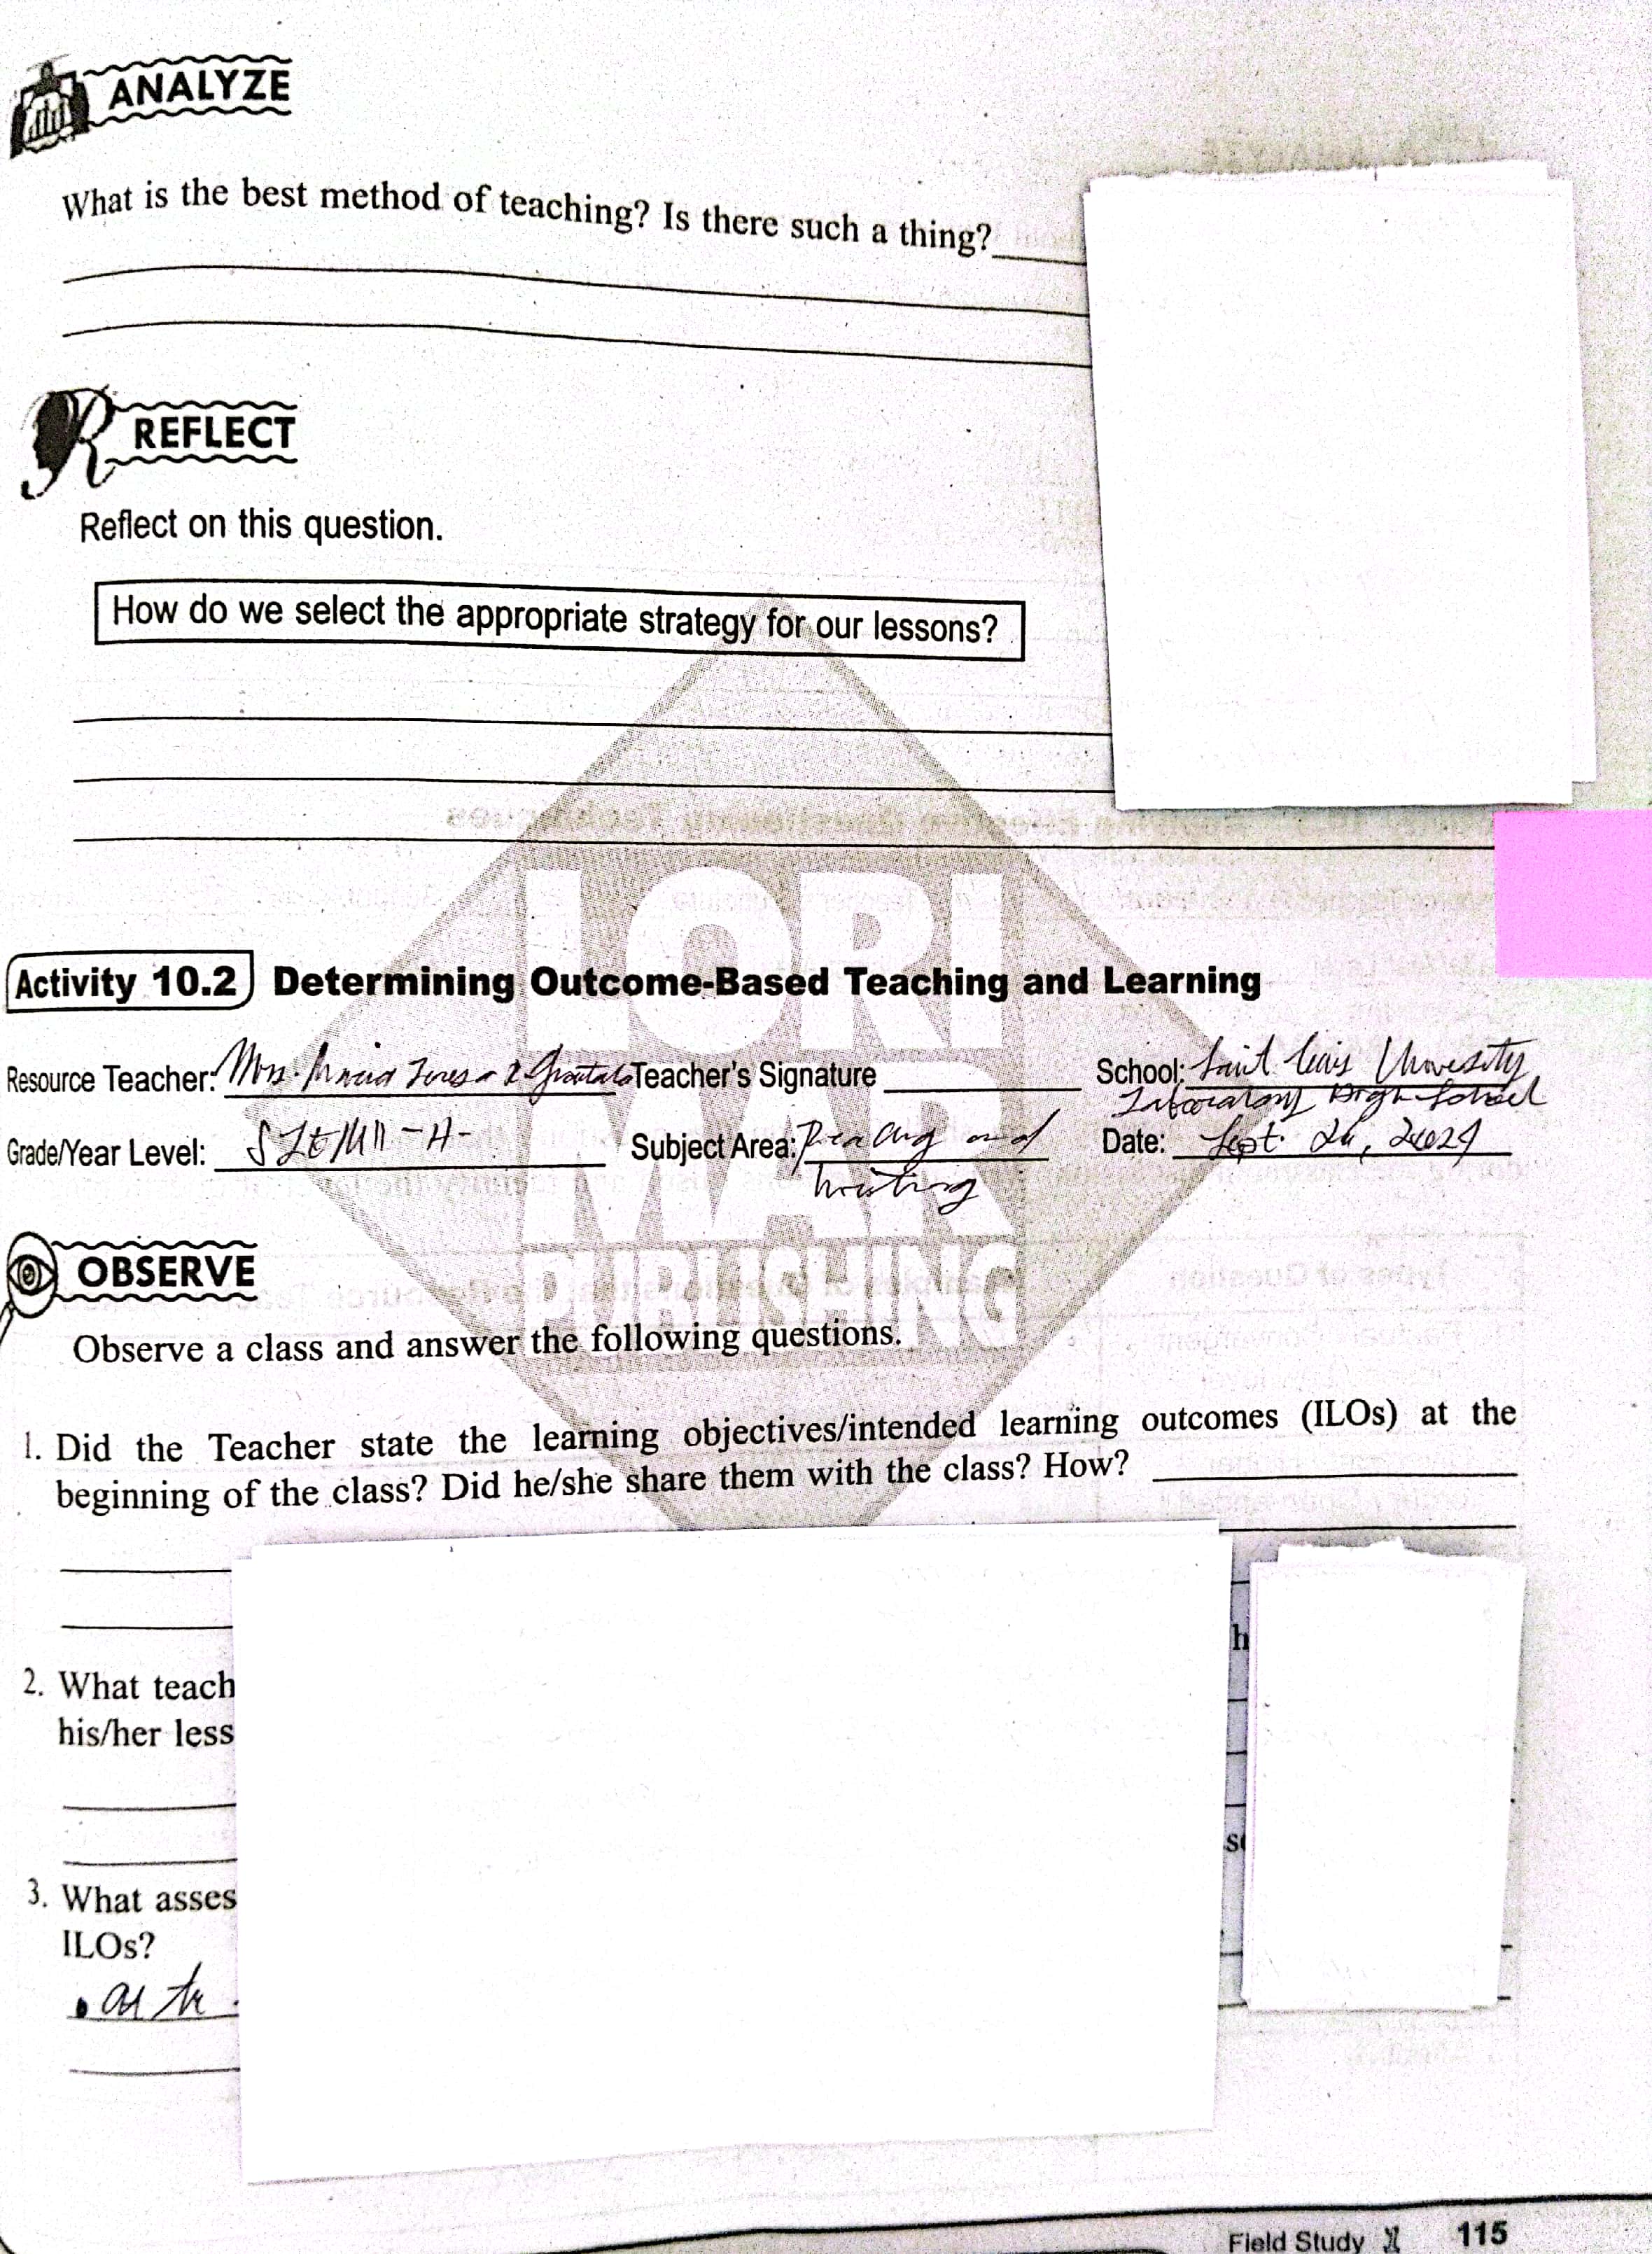 ANALYZE
What is the best method of teaching? Is there such a thing?
REFLECT
Reflect on this question.
How do we select the appropriate strategy for our lessons?
LORI
MAR
PUBLISHING
Activity 10.2 Determining Outcome-Based Teaching and Learning
Resource Teacher: Mrs. Teacher's Signature School: Saint Louis University
Laboratory High School
Grade/Year Level: Subject Area: Reading and Date: Sept. 24, 2024
Writing
OBSERVE
Observe a class and answer the following questions.
1. Did the Teacher state the learning objectives/intended learning outcomes (ILOs) at the
beginning of the class? Did he/she share them with the class? How?
h
2. What teach
his/her less
3. What asses
ILOs?
Field Study 115